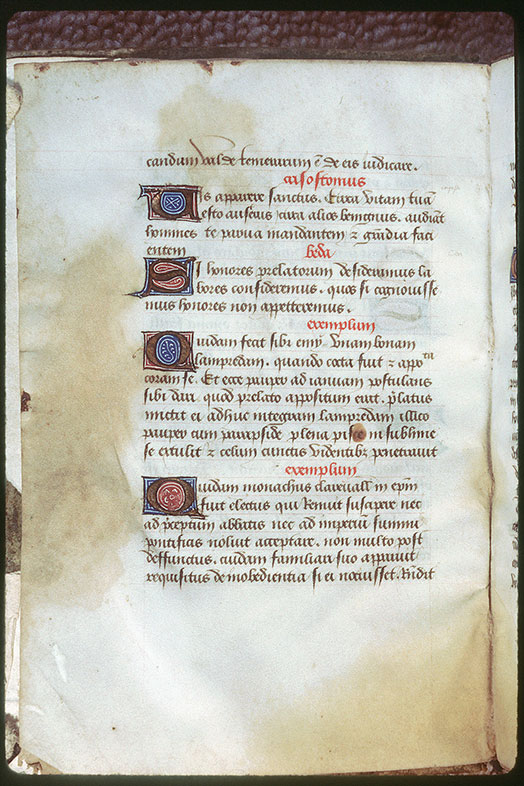 candum valde temerarium ē de eis iudicare.
crisostomus
Vis apparere sanctus. Circa vitam tuā
esto austerus circa alios benignus. audiāt
homines te parua mandantem ⁊ grādia faci
entem
beda
Si honores prelatorum desideramus la
bores consideremus. quos si cognouisse
mus honores non appetteremus.
exemplum
Quidam fecit sibi emj. vnam bonam
lampredam. quando cocta fuit ⁊ appo
coram se. Et ecce pauper ad ianuam postulans
sibi dari quod prelato appositum erat. p̄latus
mictit ei adhuc integram lampredam illico
pauper cum parapside plena pisce in sublime
se extulit ⁊ celum cunctis videntibȝ penetrauit
exemplum
Quidam monachus clareuall' in ep̄m
fuit electus qui renuit suscipere nec
ad p̄ceptum abbatis nec ad imperiū summi
pontificis noluit acceptare. non multo post
deffunctus. cuidam familiari suo apparuit
requisitus de inobedientia si ei nocuisset. R̄ndit